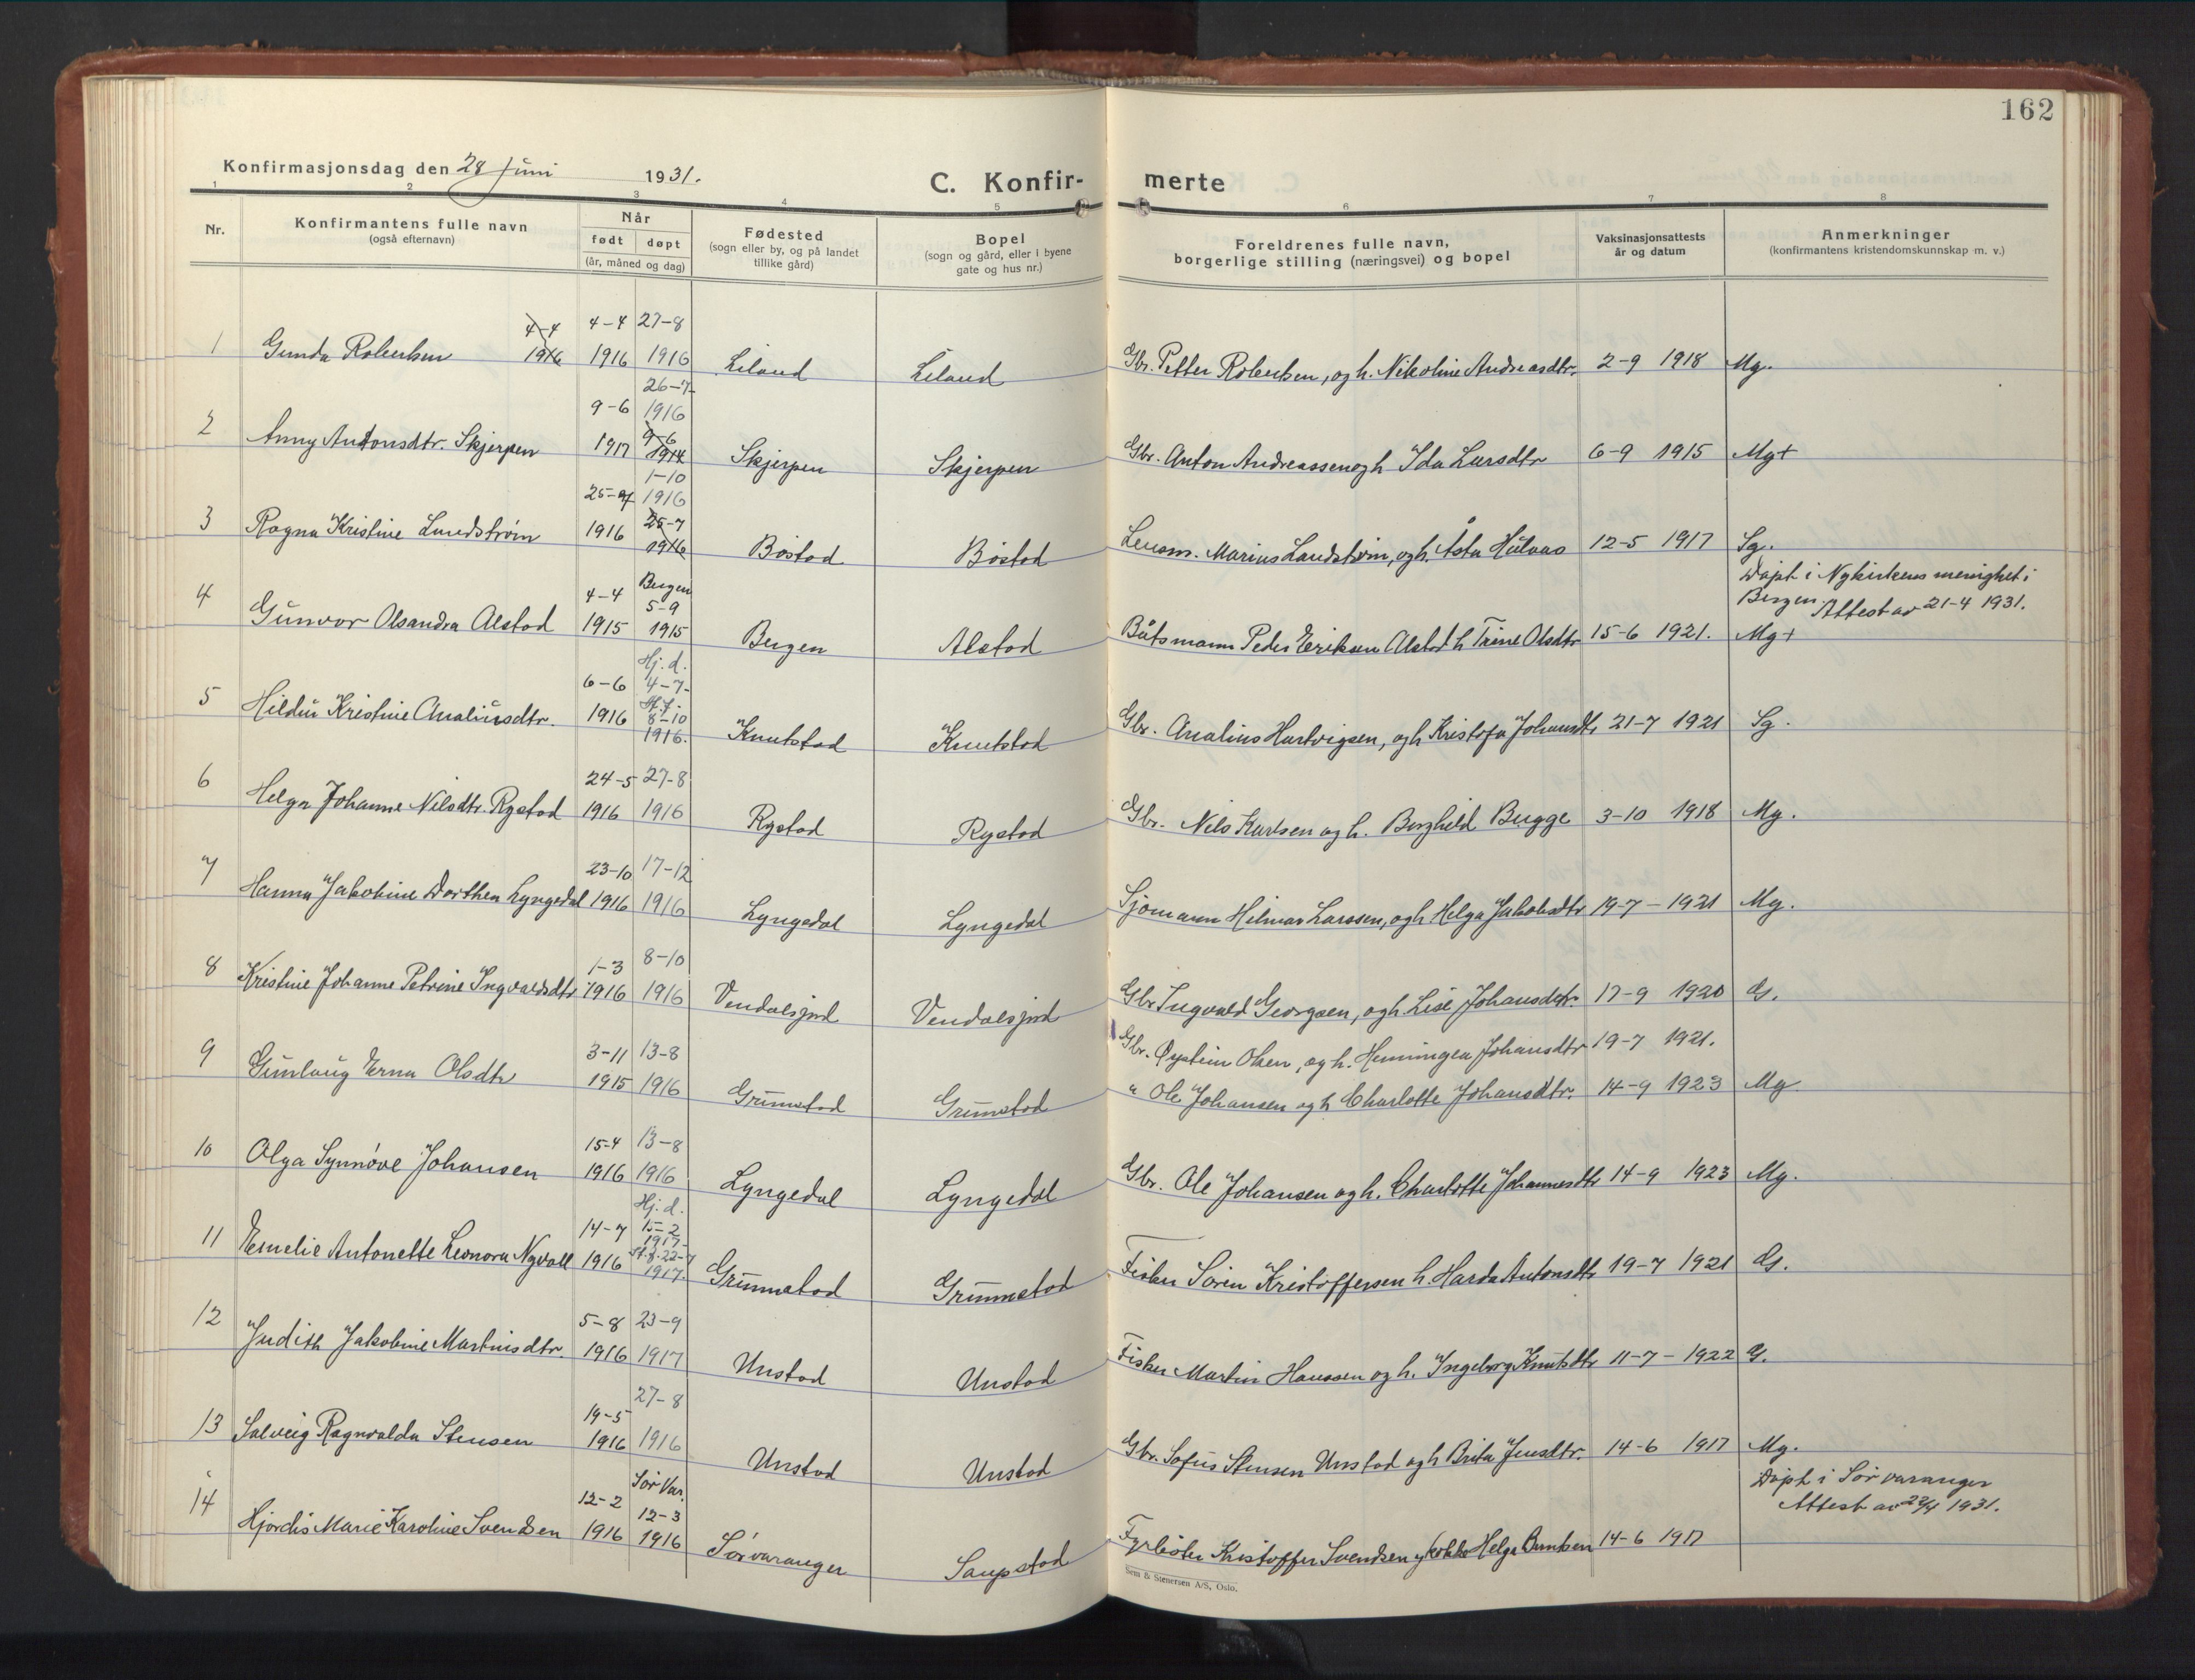 162
Konfirmasjonsdag den 28 Juni 1931.
C. Konfir- merte
1 2 3 4 5 6 7 8
Nr.
Konfirmantens fulle navn
(også efternavn)
Når
født døpt
(år, måned og dag)
Fødested
(sogn eller by, og på landet
tillike gård)
Bopel
(sogn og gård, eller i byene
gate og hus nr.)
Foreldrenes fulle navn,
borgerlige stilling (næringsvei) og bopel
Vaksinasjonsattests
år og datum
Anmerkninger
(konfirmantens kristendomskunnskap m. v.)
4-4 4-4 27-8
1 Gunda Robertsen 1916 1916 1916 Liland Liland Gbr. Petter Robertsen, og h. Nikoline Andreasdtr. 2-9 1918 Mg.
26-7-
9-6 1916
2 Anny Antonsdtr. Skjerpen 1917 9-6 1914 Skjerpen Skjerpen Gbr. Anton Andreassen og h Ida Larsdtr 6-9 1915 Mg+
1-10
25-7 1916
3 Ragna Kristine Lundstrøm 1916 25-7 1916 Bøstad Bøstad Lensm. Marius Lundstrøm, og h. Åsta 12-5 1917 Sg.
Døpt i Nykirkens menighet i
Bergen. Attest av 21-4 1931.
Bergen
4-4 5-9
4 Gunvor Olsandra Alstad 1915 1915 Bergen Alstad Båtsmann Peder Eriksen Alstad h Trine Olsdtr 15-6 1921. Mg+
Hj. d.
6-6 4-7-
St. f.
8-10
5 Hildur Kristine Analiusdtr. 1916 1916. Knutstad Knutstad Gbr. Analius Hartvigsen, og h Kristofa Johansdtr 21-7 1921 Sg.
24-5 27-8
6 Helga Johanne Nilsdtr. Rystad 1916 1916 Rystad Rystad Gbr. Nils Karlsen og h. Borghild Bugge 3-10 1918 Mg.
23-10 17-12
7 Hanna Jakobine Dorthea Lyngedal 1916 1916 Lyngedal Lyngedal Sjømann Hilmar Larssen, og h Helga Jakobsdtr 19-7-1921 Mg.
1-3 8-10
8 Kristine Johanne Petrine Ingvaldsdtr 1916 1916 Vendalsjord Vendalsjord Gbr Ingvald Georgsen, og h. Lise Johansdtr. 17-9 1920 G.
Gbr. Øystein Olsen, og h. Henningea Johansdtr 19-7 1921.
3-11 13-8
9 Gunlaug Erna Olsdtr 1915 1916 Grunstad Grunstad " Ole Johansen og h Charlotte Johansdtr. 14-9 1923 Mg
15-4 13-8
10 Olga Synnøve Johansen 1916 1916 Lyngedal Lyngedal Gbr. Ole Johansen og h. Charlotte Johannesdtr 14-9 1923 Mg.
Hj. d.
14-7 15-2
1917-
St. f. 22-7
11 Emelie Antonette Leonora Nyvoll 1916 1917. Grunnstad Grunnstad Fisker Søren Kristoffersen h. Harda Antonsdtr 19-7 1921 G.
5-8 23-9
12 Judith Jakobine Martinsdtr. 1916 1917 Unstad Unstad Fisker Martin Hanssen og h. Ingeborg Knutsdtr 11-7-1922 G.
27-8
19-5
13 Solveig Ragnvalda Stensen 1916 1916 Unstad Unstad Gbr. Sofus Stensen Unstad og h Brita Jensdtr. 14-6 1917 Mg.
Døpt i Sør varanger
Attest av 22/4 1931.
Sør Var.
12-2 12-3
14 Hjørdis Marie Karoline Svendsen 1916 1916 Sørvaranger Saupstad Fyrbøter Kristoffer Svendsen Helga Berntsen 14-6 1917
Sem & Stenersen A/S, Oslo.